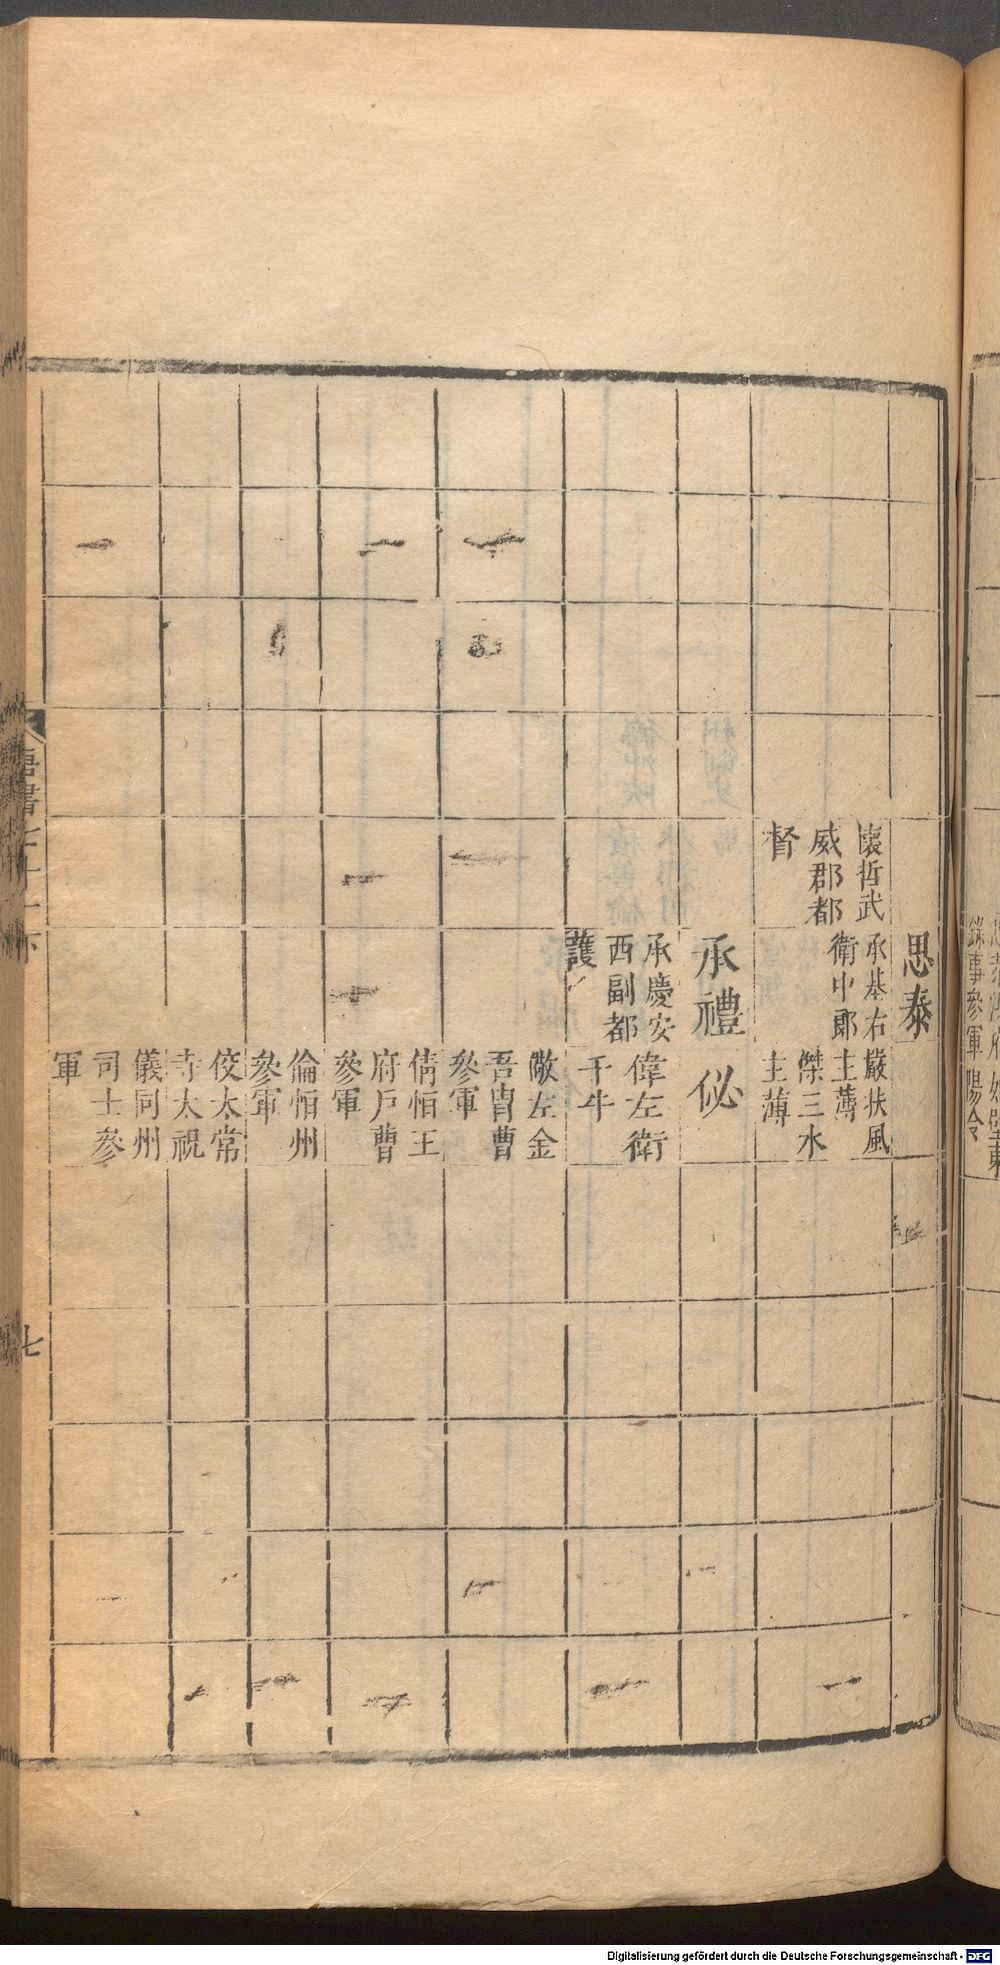 思泰
懷哲武
威郡都
督
承基右
衛中郎
嚴扶風
主薄
傑三水
主薄
承禮
佖
承慶安
西副都
護
偉左衛
千牛
敞左金
吾冑曹
參軍
倩恒王
府戶曹
參軍
倫恒州
參軍
佼太常
寺太祝
儀同州
司士參
軍
唐書七十一下
七
錄事參軍
陽令
Digitalisierung gefördert durch die Deutsche Forschungsgemeinschaft - DFG